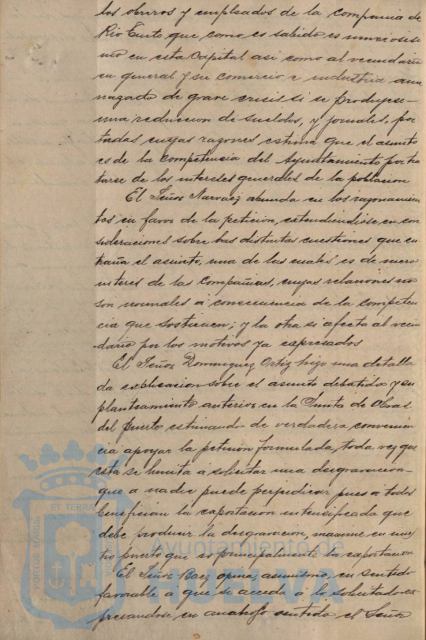 los obreros y empleados de la compañia de
Rio Tinto que como es sabido es numerosisi
mo en esta Capital asi como al vecindario
en general y su comercio e industria ame
nazados de grave crisis si se produjese
una reduccion de sueldos, y jornales, por
todas cuyas razones estima que el asunto
es de la competencia del Ayuntamiento por tra
tarse de los intereles generales de la poblacion
El Señor Narvaez abunda en los razonamien
tos en favor de la peticion, extendiendose en con
sideraciones sobre las distintas cuestiones que en
traña el asunto, una de las cuales es de mero
interes de las Compañias, cuyas relaciones no
son normales a consecuencia de la competen
cia que sostienen; y la otra si afecta al vecin
dario por los motivos ya expresados
El Señor Dominguez Ortiz hizo una detalla
da explicacion sobre el asunto debatido y su
planteamiento anterior en la Junta de Obras
del puerto estimando de verdadera convenien
cia apoyar la peticion formulada, toda vez que
esta se limita a solicitar una desgravacion
que a nadie puede perjudicar pues a todos
beneficiara la exportacion intensificada que
debe producir la desgravacion, maxime en nues
tro puerto que es principalmente la exportacion
El Señor Baez opina, asimismo, en sentido
favorable a que se acceda a lo solicitado ex
presandose en analogo sentido el Señor
PORTUS MARIS ET TERRAE
Ayuntamiento
HUELVA